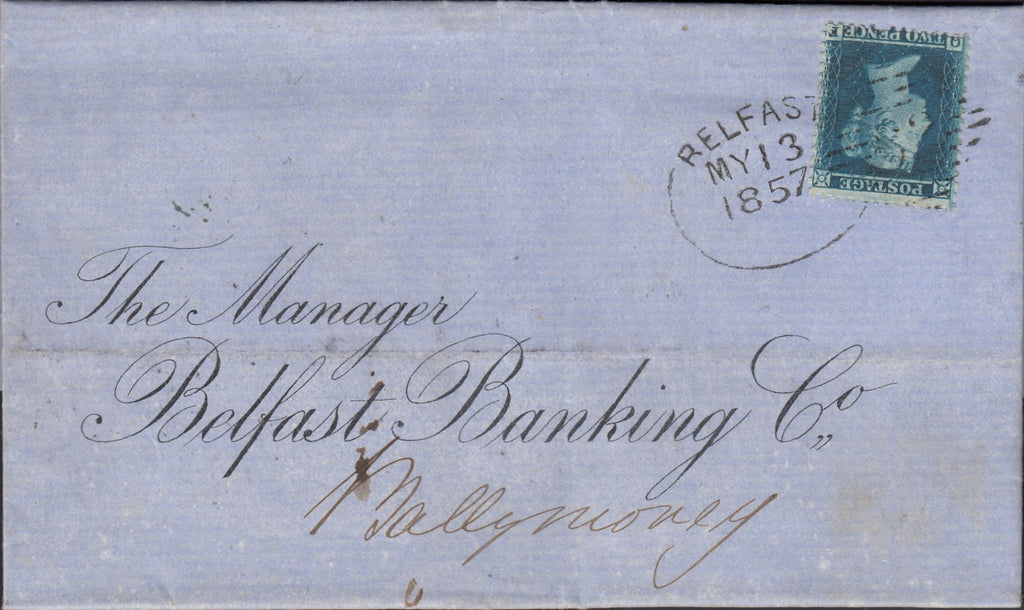 POSTAGE
TWO PENCE
BELFAST
MY 13
1857
The Manager
Belfast Banking Co,,
Ballymoney